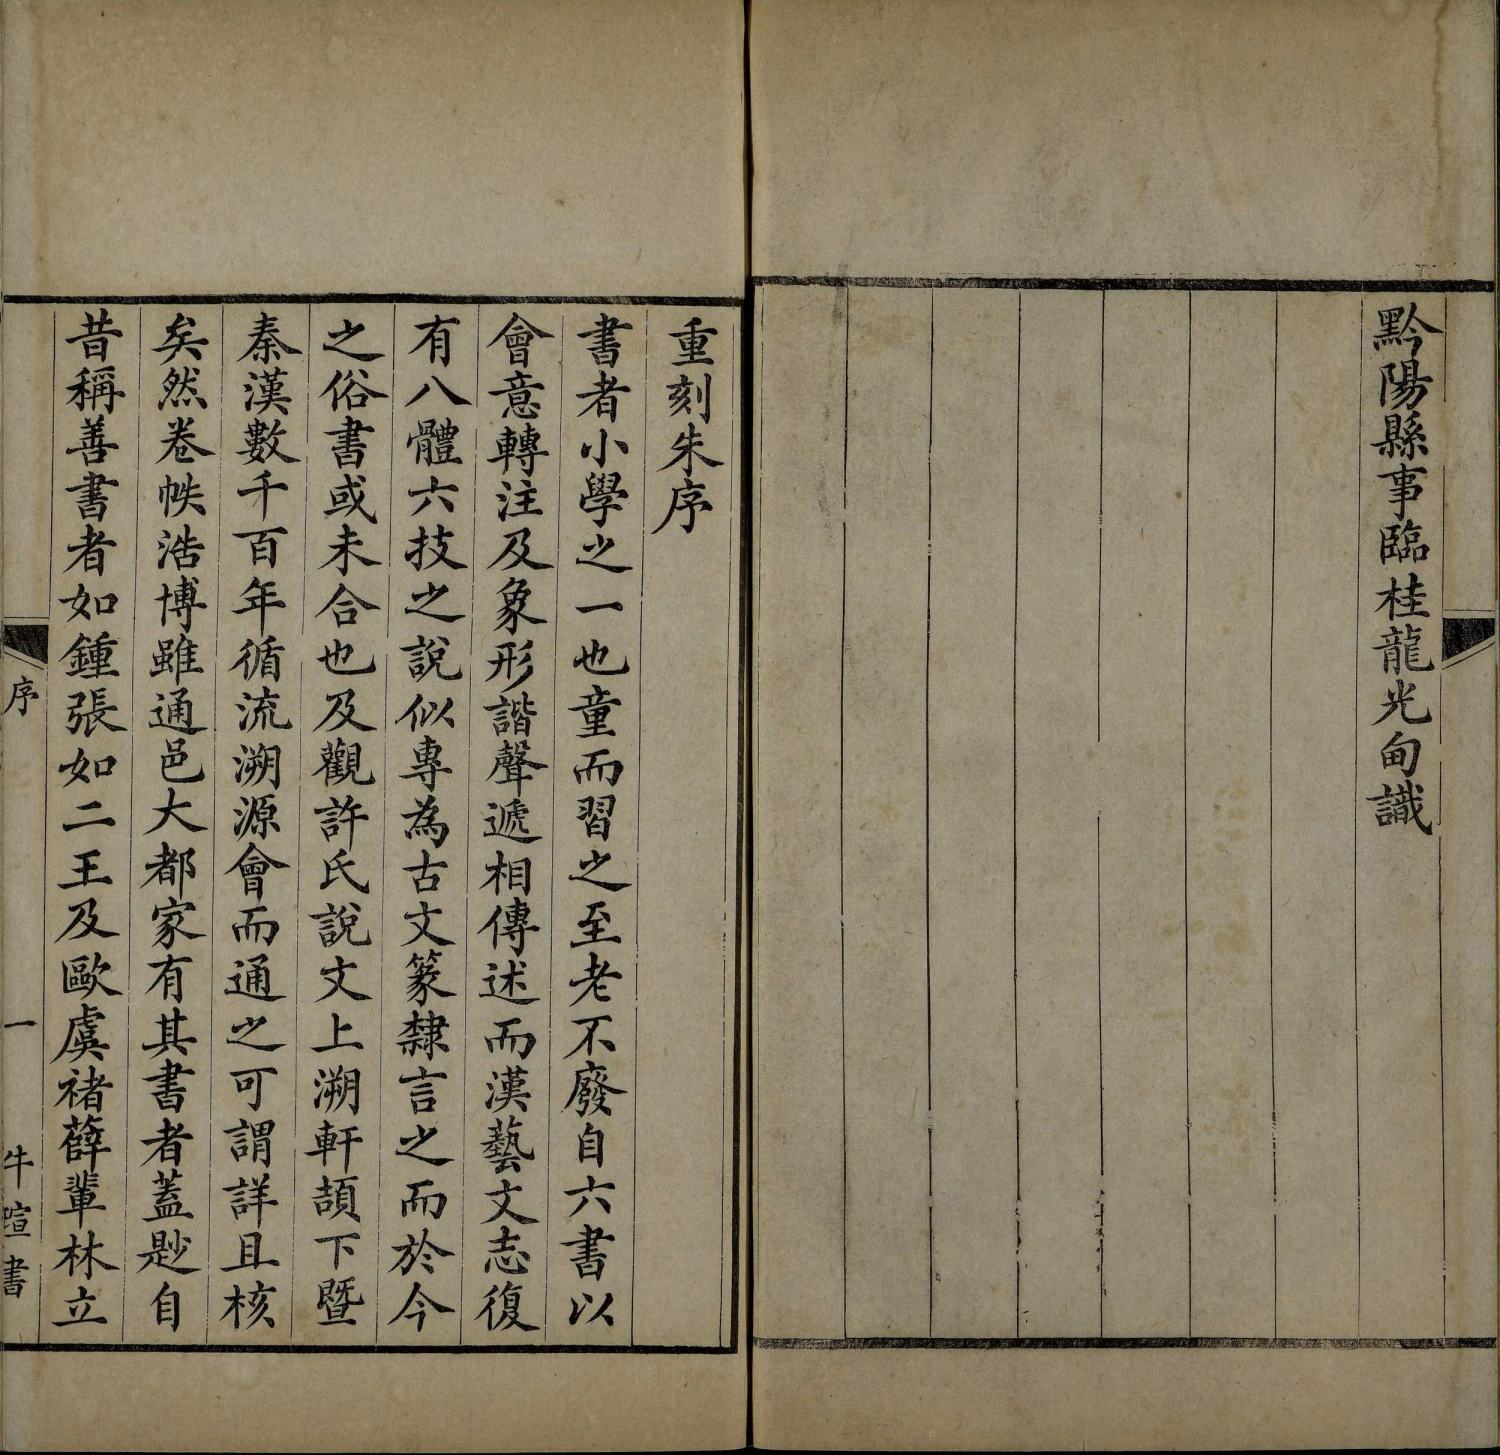 黔陽縣事臨桂龍光甸識
重刻朱序
書者小學之一也童而習之至老不廢自六書以
會意轉注及象形諧聲遞相傳述而漢藝文志復
有八體六技之說似專為古文篆隸言之而於今
之俗書或未合也及觀許氏說文上溯軒頡下暨
秦漢數千百年循流溯源會而通之可謂詳且核
矣然卷帙浩博雖通邑大都家有其書者蓋尟自
昔稱善書者如鍾張如二王及歐虞褚薛輩林立
序
一
牛暄書